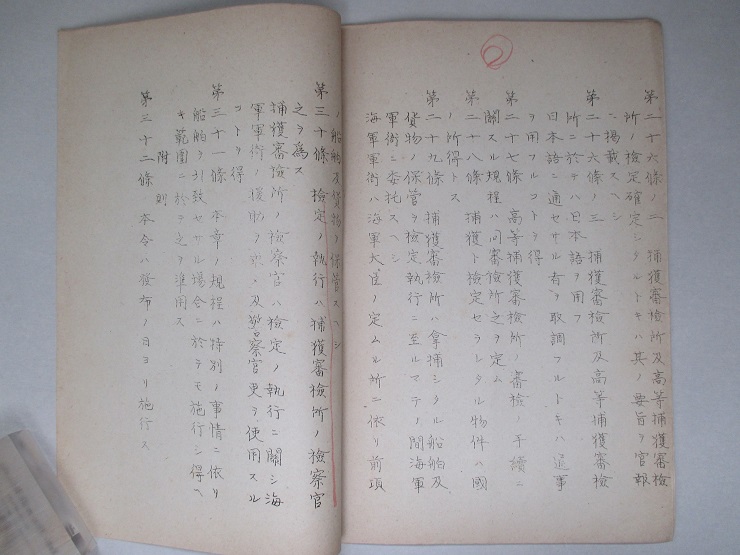 ②
第二十六條ノ二 捕獲審檢所及高等捕獲審檢
所ノ檢定確定シタルトキハ其ノ要旨ヲ官報
ニ掲載スヘシ
第二十六條ノ三 捕獲審檢所及高等捕獲審檢
所ニ於テハ日本語ヲ用フ
日本語ニ通セサル者ヲ取調フルトキハ通事
ヲ用フルコトヲ得
第二十七條 高等捕獲審檢所ノ審檢ノ手續ニ
關スル規程ハ同審檢所之ヲ定ム
第二十八條 捕獲ト檢定セラレタル物件ハ國
ノ所得トス
第二十九條 捕獲審檢所ハ拿捕シタル船舶及
貨物ノ保管ヲ檢定執行ニ至ルマテノ間海軍
軍衙ニ委托スヘシ
海軍軍衙ハ海軍大臣ノ定ムル所ニ依リ前項
ノ船舶及貨物ノ保管スヘシ
第三十條 檢定ノ執行ハ捕獲審檢所ノ檢察官
之ヲ為ス
捕獲審檢所ノ檢察官ハ檢定ノ執行ニ關シ海
軍軍衙ノ援助ヲ求メ及警察官吏ヲ使用スル
コトヲ得
第三十一條 本章ノ規程ハ特別ノ事情ニ依リ
船舶ヲ引致セサル場合ニ於テモ施行シ得ヘ
キ範圍ニ於テ之ヲ準用ス
附則
第三十二條 本令ハ發布ノ日ヨリ施行ス